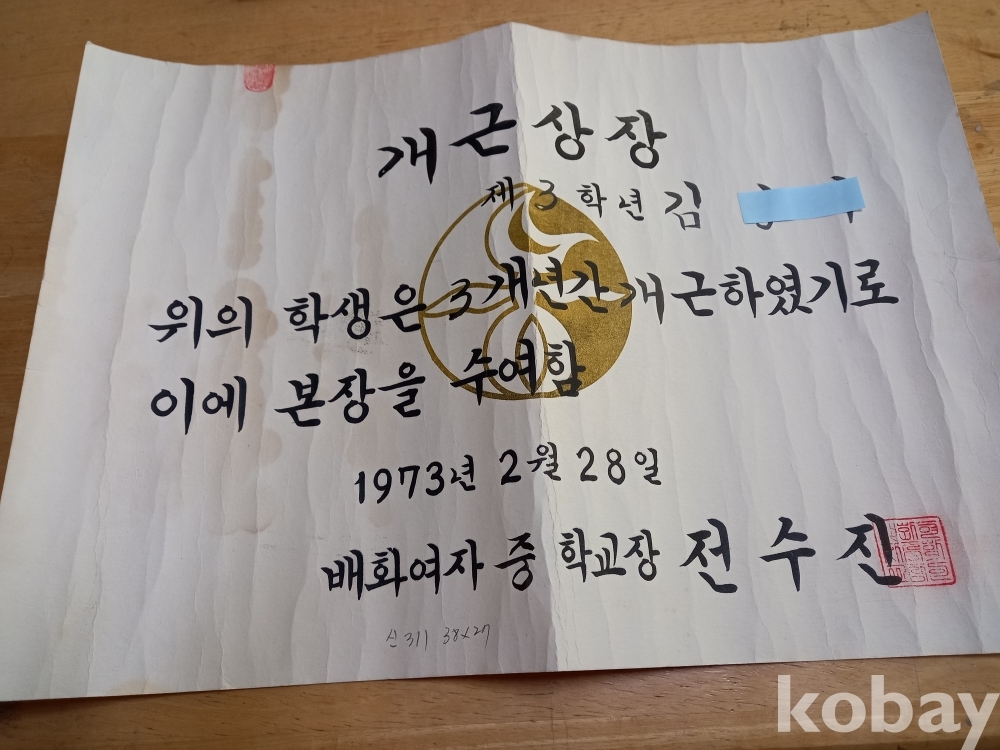 개근상장
제3학년 김
위의 학생은 3개년간 개근하였기로
이에 본장을 수여함
1973년 2월 28일
배화여자중학교장 전수진
신311 38x27
kobay